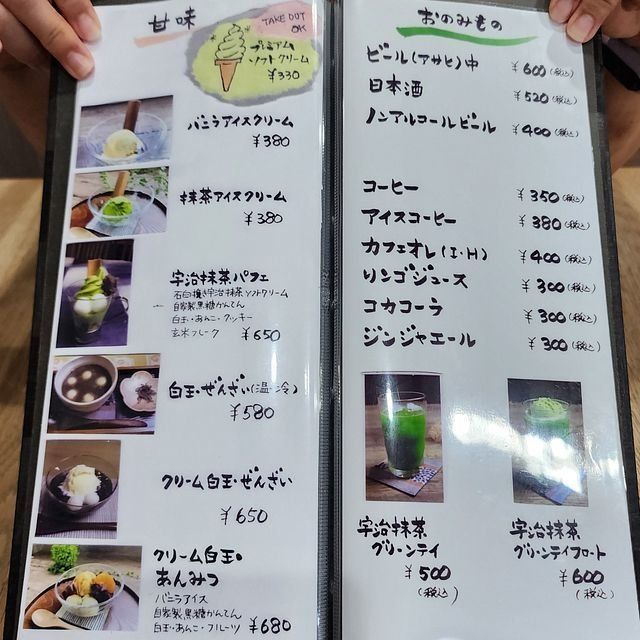 甘味
TAKE OUT
OK
プレミアム
ソフトクリーム
¥330
バニラアイスクリーム
¥380
抹茶アイスクリーム
¥380
宇治抹茶パフェ
石臼挽き宇治抹茶ソフトクリーム
自家製黒糖かんてん
白玉・あんこ・クッキー
玄米フレーク ¥650
白玉・ぜんざい(温・冷)
¥580
クリーム白玉・ぜんざい
¥650
クリーム白玉・
あんみつ
バニラアイス
自家製黒糖かんてん
白玉・あんこ・フルーツ ¥680
おのみもの
ビール(アサヒ)中 ¥600(税込)
日本酒 ¥520(税込)
ノンアルコールビール ¥400(税込)
コーヒー ¥350(税込)
アイスコーヒー ¥380(税込)
カフェオレ(I・H) ¥400(税込)
リンゴジュース ¥300(税込)
コカコーラ ¥300(税込)
ジンジャエール ¥300(税込)
宇治抹茶
グリーンティ
¥500
(税込)
宇治抹茶
グリーンティフロート
¥600
(税込)